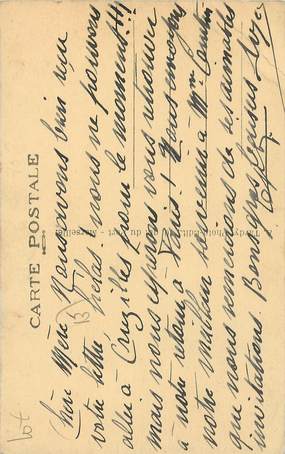 CARTE POSTALE
Chère Mère Nous avons bien reçu
votre lettre hélas! nous ne pouvons
aller à Cruzilles pour le moment!!!
mais nous espérons vous retrouver
à notre retour à Paris! Nous envoyons
notre meilleur souvenir à Mme
que nous remercions de ses aimables
invitations. Bons gros baisers
Marseille
13
Lot